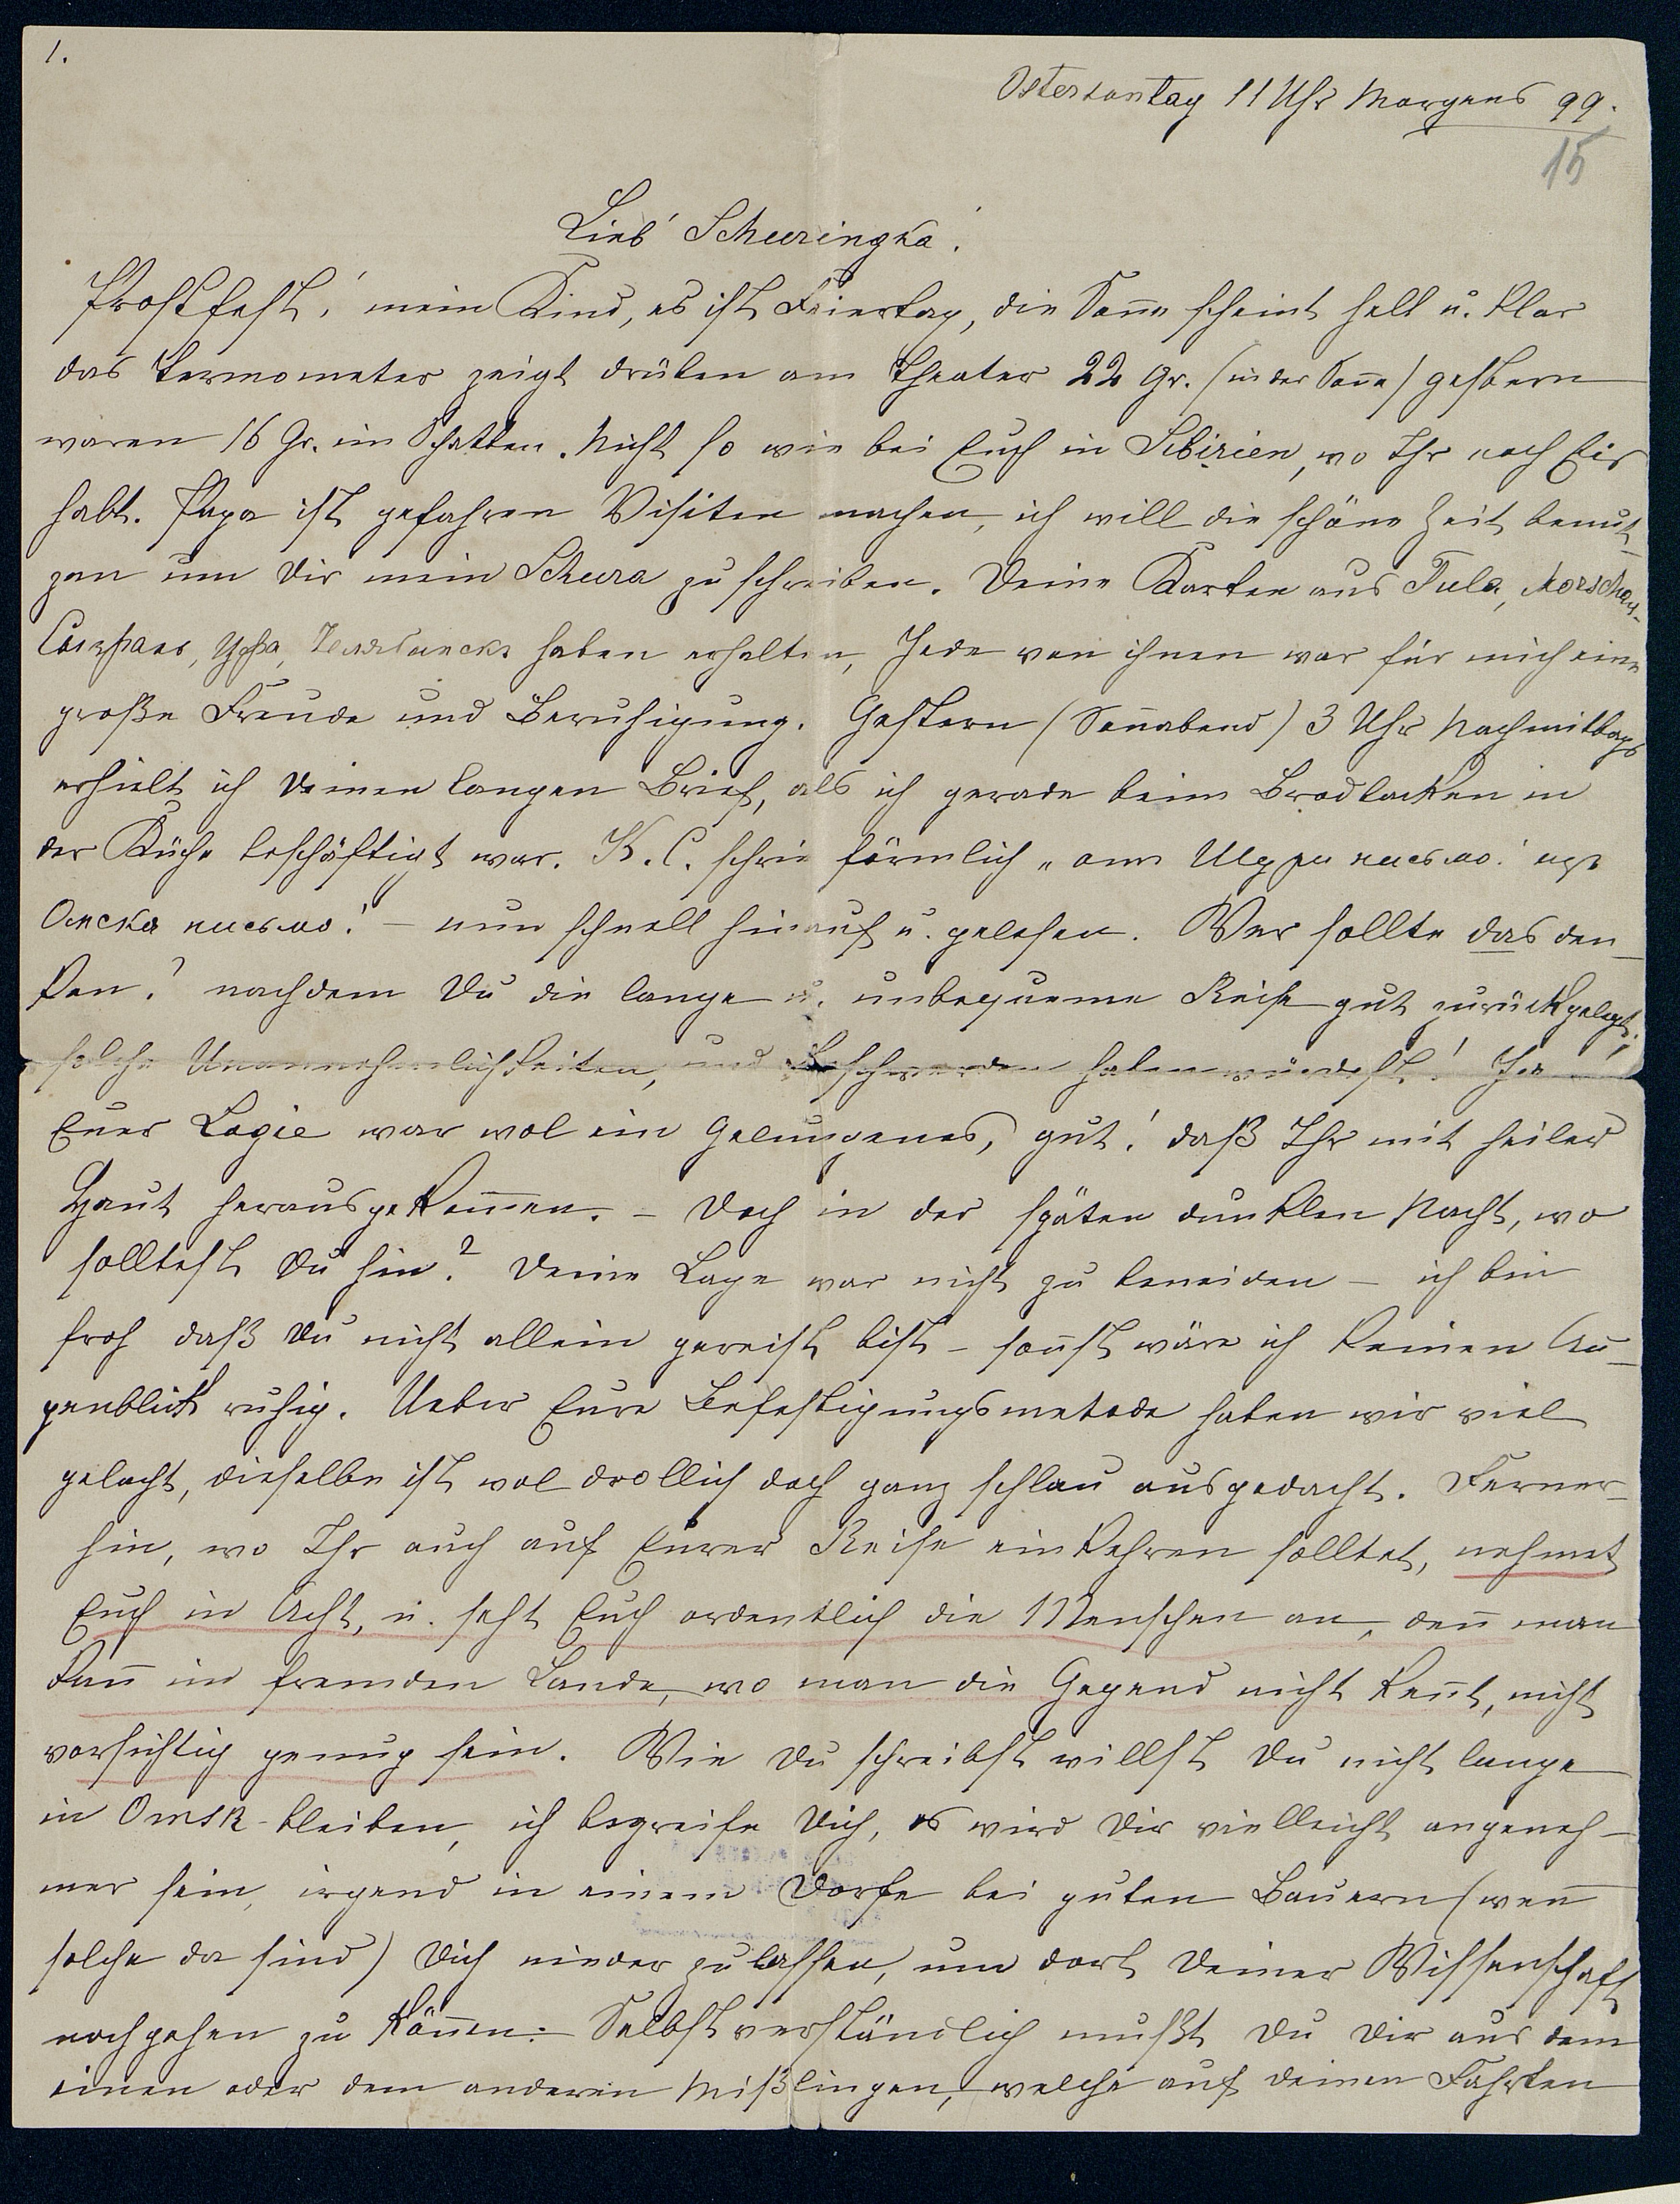 1.
Ostersontag 11 Uhr Morgens 99.
15
Lieb' Schuringka!
Prostfest! mein Kind, es ist Feiertag, die Soñe scheint hell u. klar
das Termometer zeigt drüben am Theater 22 Gr. (in der Soñe) gestern
waren 16 Gr. im Schatten. Nicht so wie bei Euch in Sibirien, wo Ihr noch Eis
habt. Papa ist gefahren Visiten machen, ich will die schöne Zeit benut-
zen um Dir mein Schura zu schreiben. Deine Karten aus Tula, Morschan-
Сызрань, Уфа, Челябинскъ haben erhalten, Jede von ihnen war für mich eine
große Freude und Beruhigung. Gestern (Soñabend) 3 Uhr Nachmittags
erhielt ich Deinen langen Brief, als ich gerade beim Brodbacken in
der Küche beschäftigt war. K. C. schrie förmlich „ отъ Шуры письмо! изъ
Омска письмо! – nun schnell hinauf u. gelesen. Wer sollte das den-
ken! nachdem Du die lange u. unbequeme Reise gut zurückgelegt,
solche Unannehmlichkeiten, und Beschwerden haben würdest! Ja!
Euer Logie war wol ein Gelungenes, gut! daß Ihr mit heiler
Haut herausgekom̃en. – Doch in der späten dunklen Nacht, wo
solltest Du hin? Deine Lage war nicht zu beneiden – ich bin
froh daß Du nicht allein gereist bist – soñst wäre ich keinen Au-
genblick ruhig. Ueber Eure Befestigungsmetode haben wir viel
gelacht, dieselbe ist wol drollich doch ganz schlau ausgedacht. Ferner-
hin, wo Ihr auch auf Eurer Reise einkehren solltet, nehmet
Euch in Acht, u. seht Euch ordentlich die Menschen an, deñ man
kañ im fremden Lande, wo man die Gegend nicht keñt, nicht
vorsichtig genug sein. Wie Du schreibst willst Du nicht lange
in Omsk bleiben, ich begreife Dich, es wird Dir vielleicht angeneh-
mer sein, irgend in einem Dorfe bei guten Bauern (weñ
solche da sind) Dich nieder zu lassen, um dort Deiner Wissenschaft
nachgehen zu köñen. Selbstverständlich mußt Du Dir aus dem
einen oder dem anderen Mißlingen, welche auf Deinen Fahrten